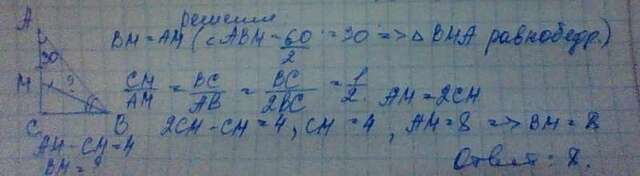 решение
A
BM = AM (∠ABM = 60/2 = 30 => △BMA равнобедр.)
30
M
?
CM/AM = BC/AB = BC/2BC = 1/2. AM = 2CM
C
B
2CM - CM = 4, CM = 4, AM = 8 => BM = 8
AM - CM = 4
BM = ?
Ответ: 8.